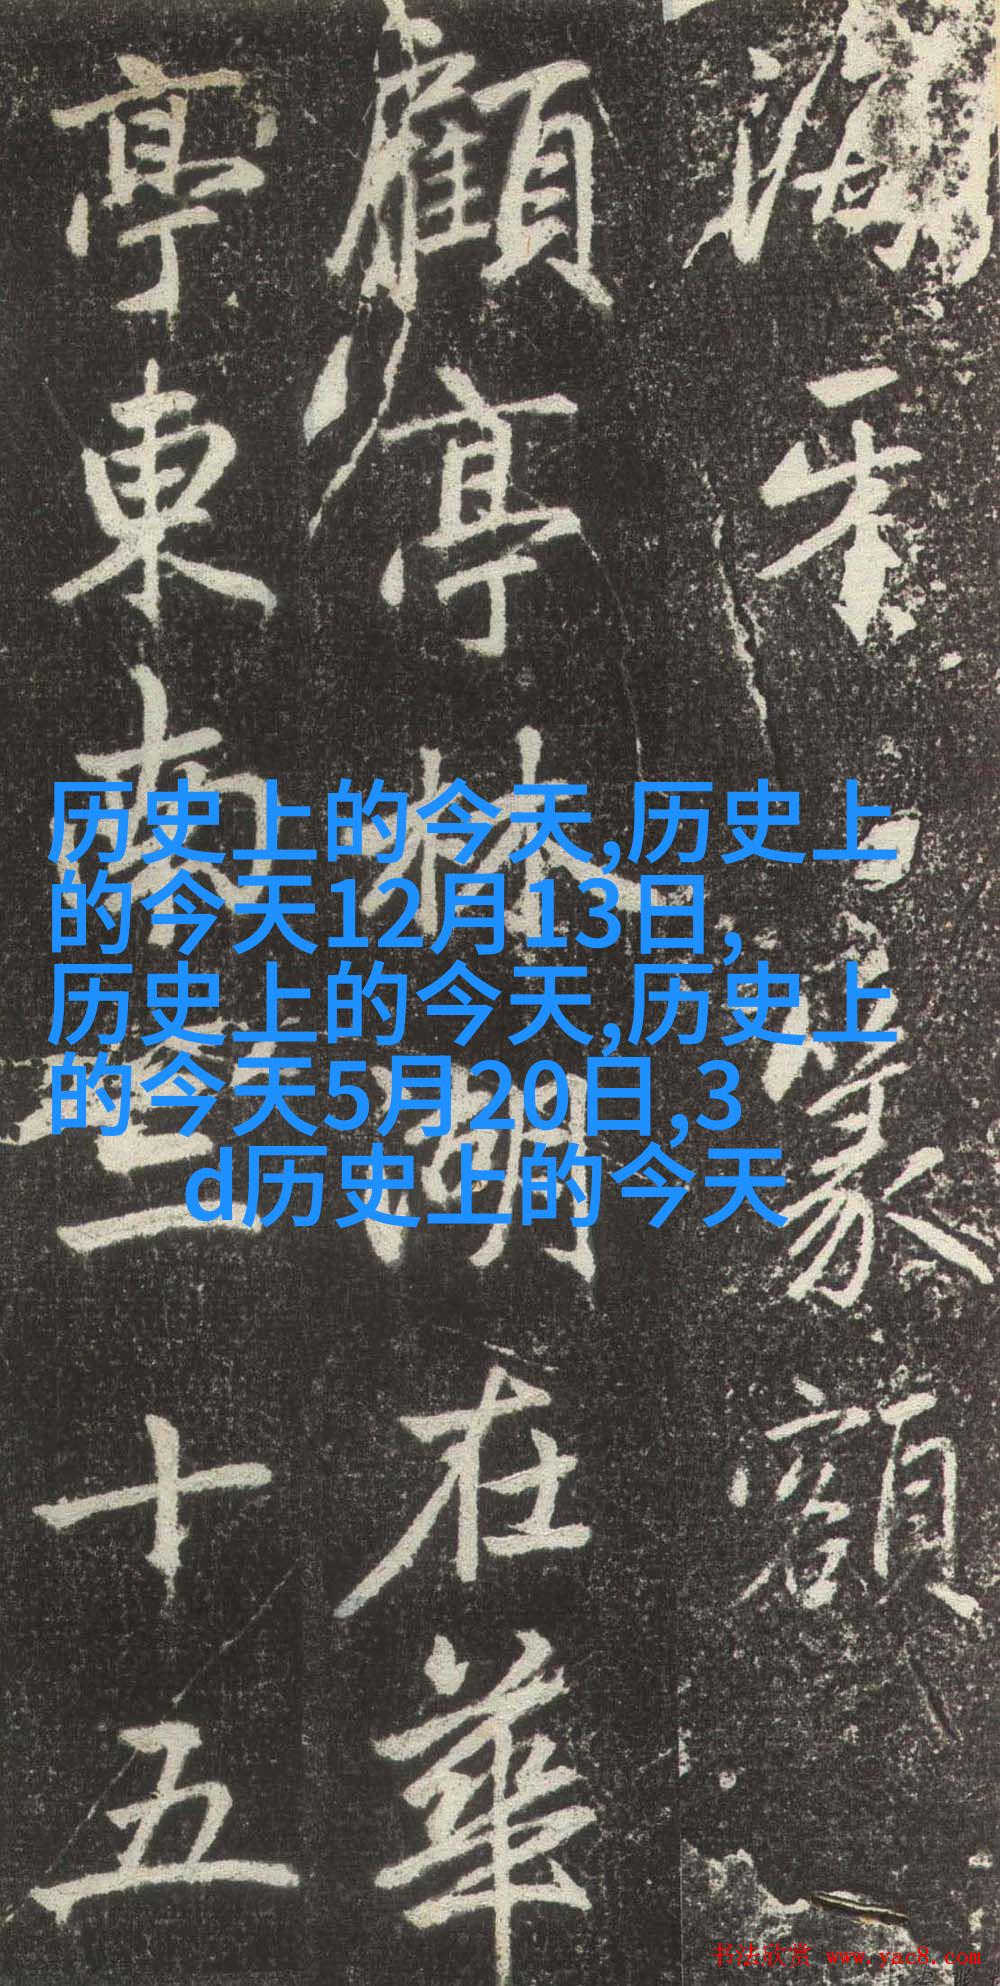 篆額
顧亭林湖在華
亭東南三十五
历史上的今天,历史上
的今天12月13日,
历史上的今天,历史上
的今天5月20日,3
d历史上的今天
书法欣赏 www.yac8.com